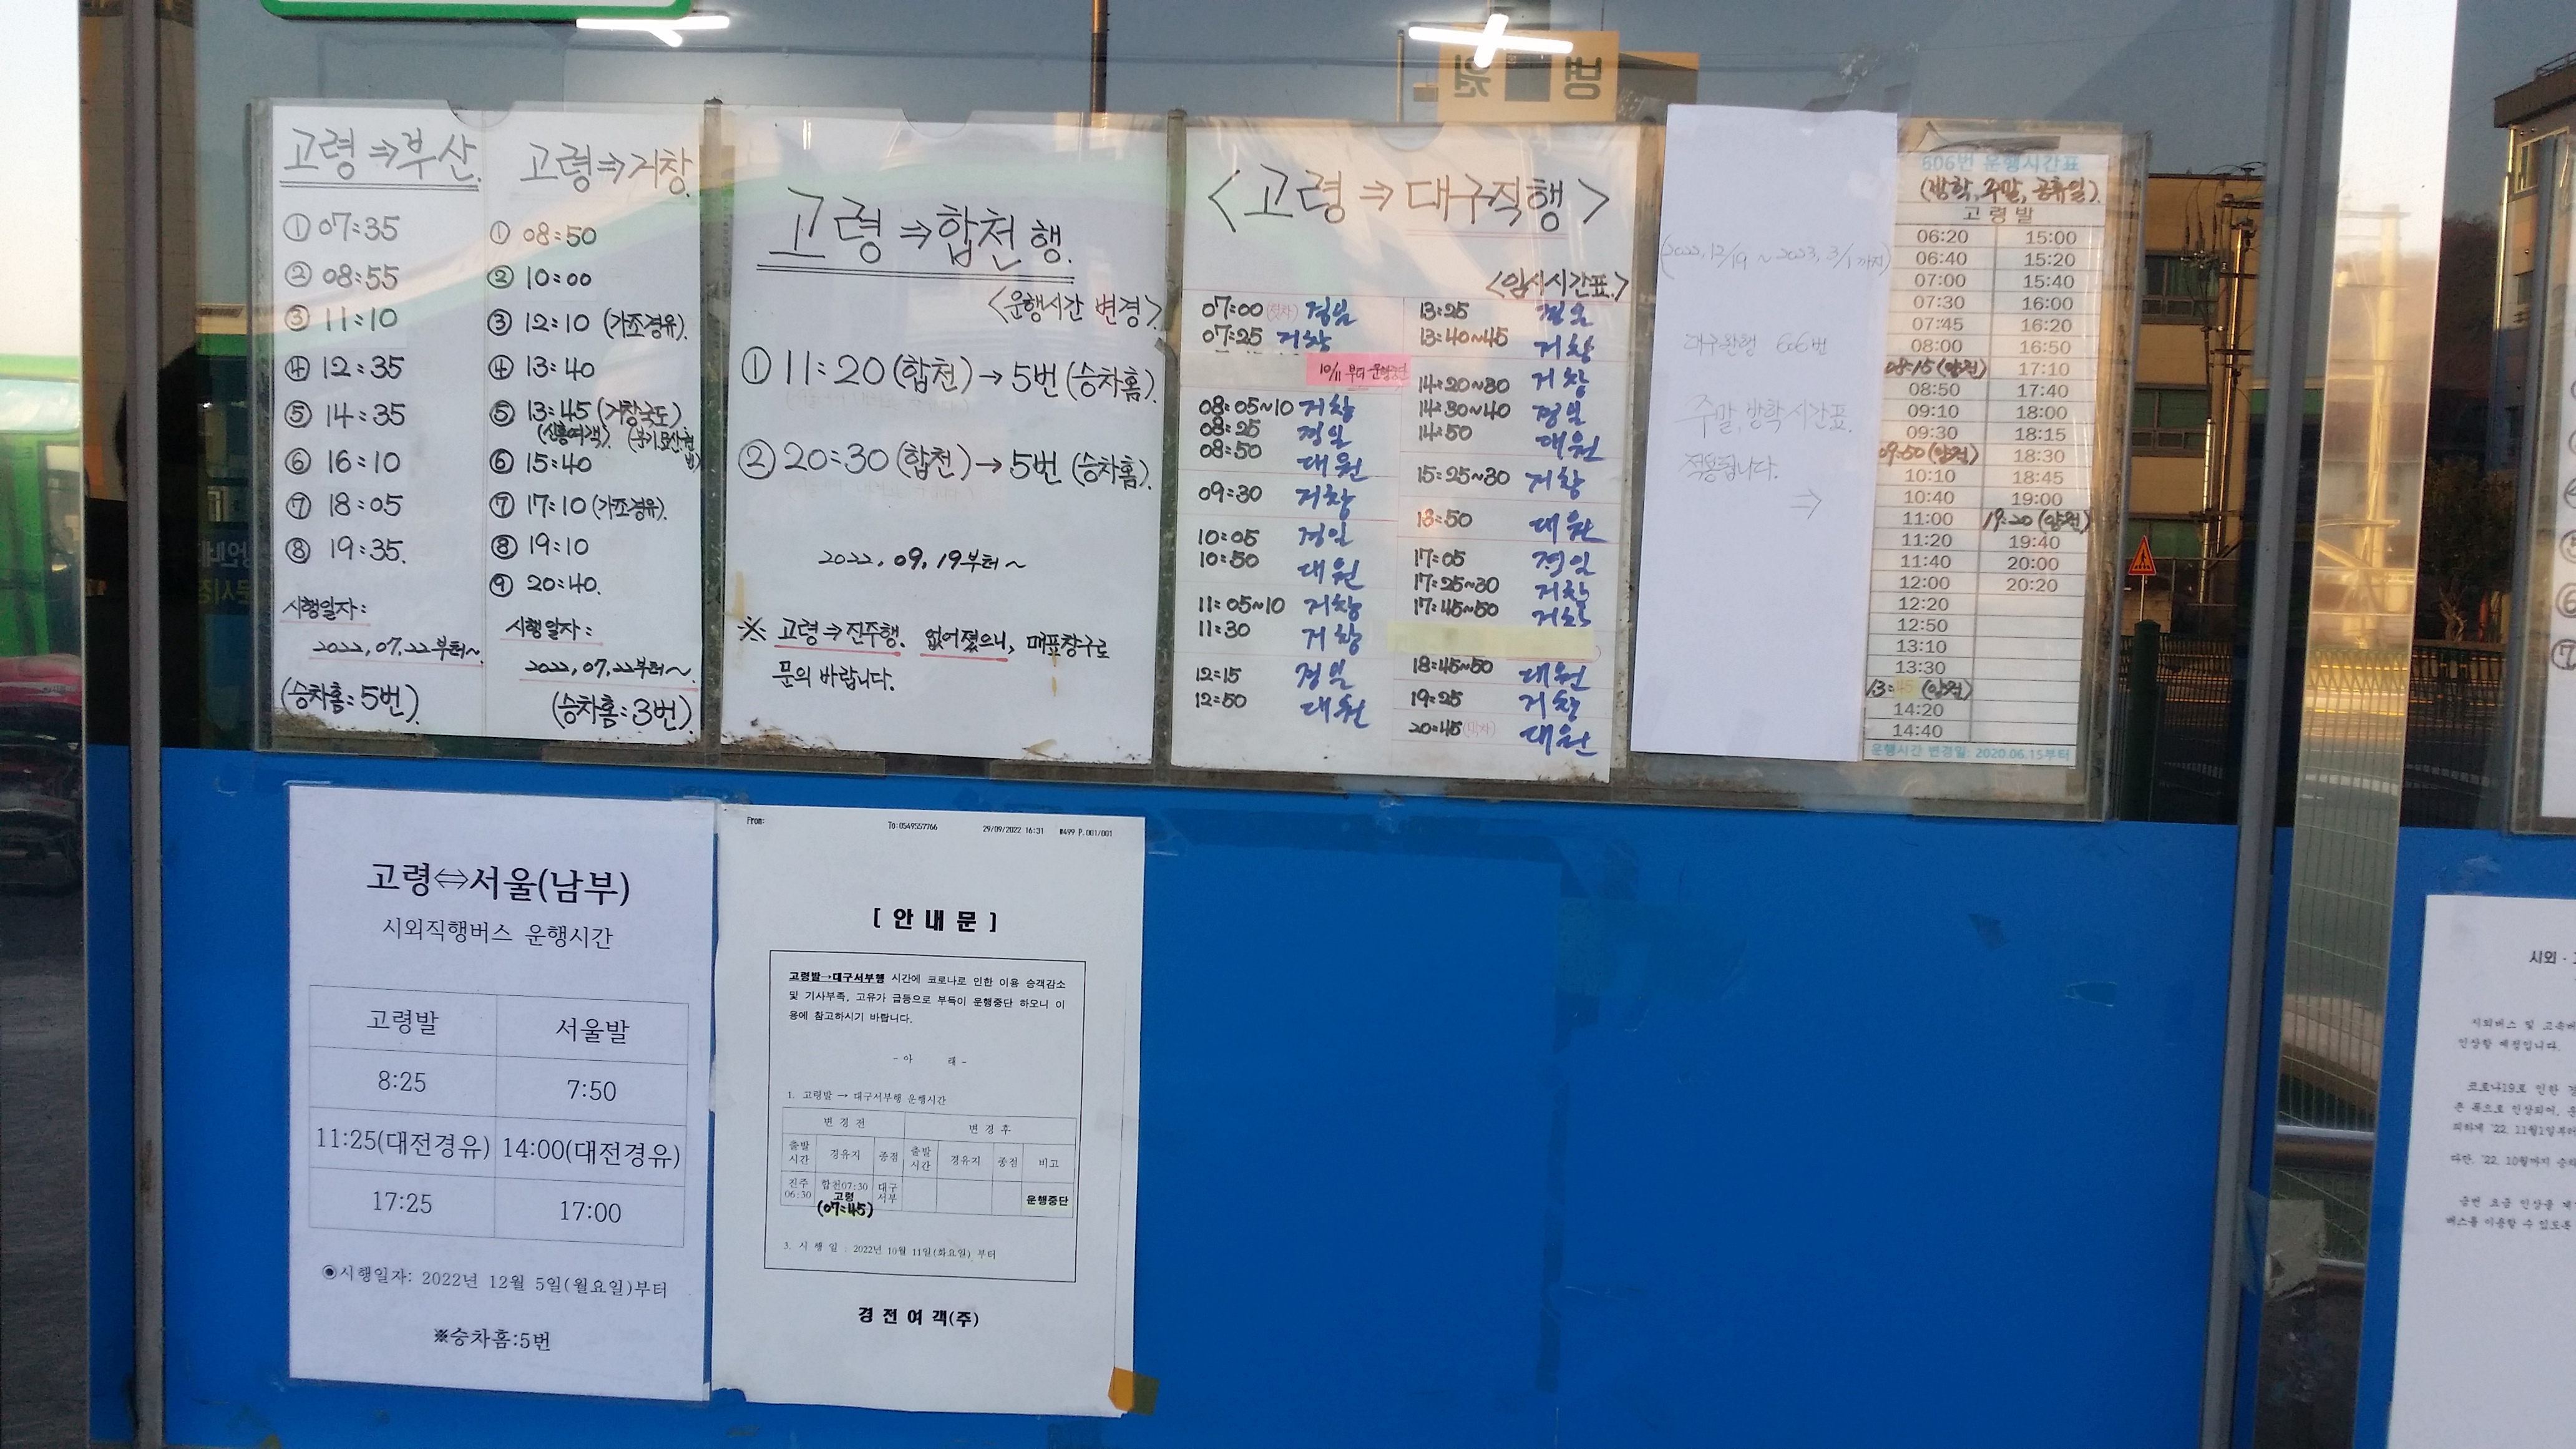 고령⇒부산.
① 07:35
② 08:55
③ 11:10
④ 12:35
⑤ 14:35
⑥ 16:10
⑦ 18:05
⑧ 19:35.
시행일자:
2022,07,22부터~.
(승차홈:5번).
고령⇒거창.
① 08:50
② 10:00
③ 12:10 (가조경유).
④ 13:40
⑤ 13:45 (거창국도)
(신흥여객).
⑥ 15:40
⑦ 17:10 (가조경유).
⑧ 19:10
⑨ 20:40.
시행일자:
2022,07,22부터~.
(승차홈:3번).
고령⇒합천행.
<운행시간 변경>.
① 11:20 (합천)→5번 (승차홈).
② 20:30 (합천)→5번 (승차홈).
2022, 09, 19부터~
※ 고령⇒진주행. 없어졌으니, 매표창구로
문의 바랍니다.
<고령⇒대구직행>
<임시시간표.>
07:00 (첫차) 경일
07:25 거창
10/11 부터 운행중단
08:05~10 거창
08:25 경일
08:50 대원
09:30 거창
10:05 경일
10:50 대원
11:05~10 거창
11:30 거창
12:15 경일
12:50 대원
13:25 경일
13:40~45 거창
14:20~30 거창
14:30~40 경일
14:50 대원
15:25~30 거창
:50 대원
17:05 경일
17:25~30 거창
17:45~50 거창
18:45~50 대원
19:25 거창
20:45 (막차) 대원
(2022, 12/19 ~ 2023, 3/1 까지)
606번
주말,방학 시간표
적용됩니다.
⇒
606번 운행시간표
(방학,주말,공휴일).
고 령 발
06:20 15:00
06:40 15:20
07:00 15:40
07:30 16:00
07:45 16:20
08:00 16:50
08:15 (양전) 17:10
08:50 17:40
09:10 18:00
09:30 18:15
09:50 (양전) 18:30
10:10 18:45
10:40 19:00
11:00 19:20 (양전)
11:20 19:40
11:40 20:00
12:00 20:20
12:20
12:50
13:10
13:30
13:45 (양전)
14:20
14:40
운행시간 변경일: 2020.06.15부터
고령⇔서울(남부)
시외직행버스 운행시간
고령발 서울발
8:25 7:50
11:25(대전경유) 14:00(대전경유)
17:25 17:00
◉시행일자: 2022년 12월 5일(월요일)부터
※승차홈:5번
From: To:0549557766 29/09/2022 16:31 #499 P.001/001
[ 안 내 문 ]
고령발→대구서부행 시간에 코로나로 인한 이용 승객감소
및 기사부족, 고유가 급등으로 부득이 운행중단 하오니 이
용에 참고하시기 바랍니다.
- 아 래 -
1. 고령발 → 대구서부행 운행시간
변 경 전 변 경 후
출발시간 경유지 종점 출발시간 경유지 종점 비고
진주 06:30 합천07:30 고령 (07:45) 대구서부 운행중단
3. 시 행 일 : 2022년 10월 11일(화요일) 부터
경 전 여 객(주)
시외 ·
시외버스 및 고속
인상할 예정입니다.
코로나19로 인한
큰 폭으로 인상되어,
피하게 '22. 11월1일부터
다만, '22. 10월까지
금번 요금 인상을
버스를 이용할 수 있도록
병 원